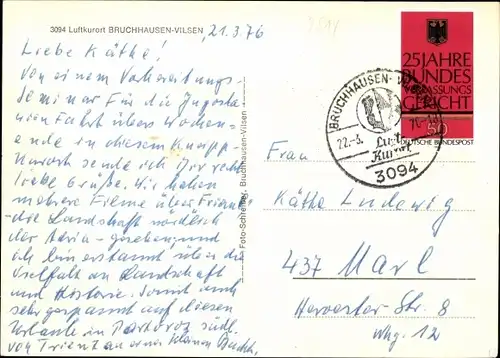 3094 Luftkurort BRUCHHAUSEN-VILSEN
21.3.76
Liebe Käthe!
Von einem Vorbereitungs-
seminar für die Jugosla-
wienfahrt über Wochen-
ende in diesem Kneipp-
kurort sende ich Dir recht
liebe Grüße. Wir haben
mehrere Filme über
die Landschaft nördlich
der Adria gesehen und
ich bin erstaunt über die
Vielfalt an Landschaft
und Historie. Somit auch
sehr gespannt auf diesen
Urlaub in Portoroz südl.
von Triest an einer kleinen
Foto-Schreiner, Bruchhausen-Vilsen
25 JAHRE
BUNDES
VERFASSUNGS
GERICHT
50
DEUTSCHE BUNDESPOST
BRUCHHAUSEN-
22.-3.
Luft
Kurort
3094
Frau
Käthe Ludewig
437 Marl
Hervester Str. 8
Whg. 12